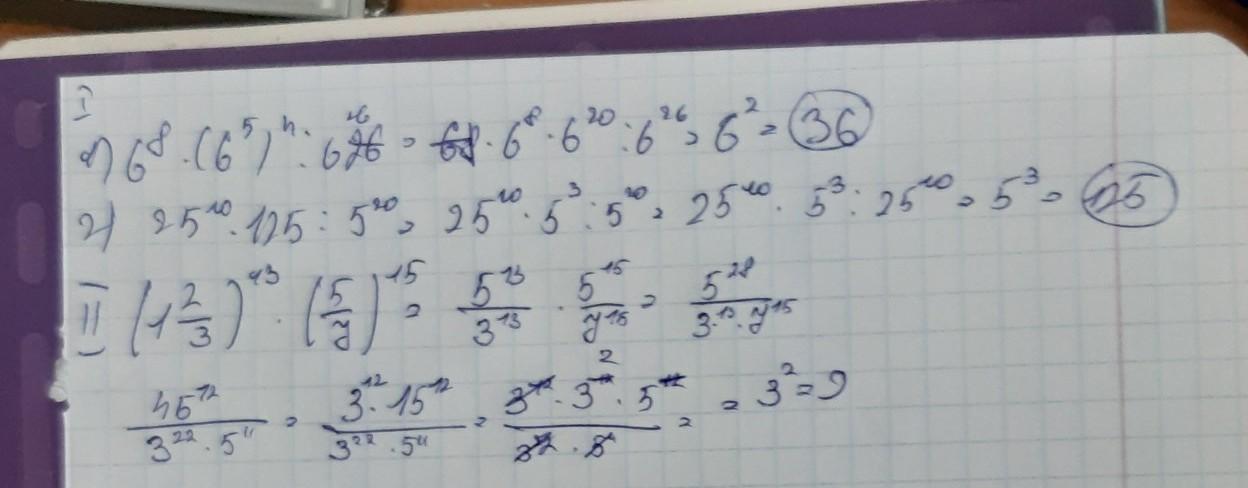 I
1) 6⁸ · (6⁵)⁴ : 6²⁶ = 6⁸ · 6²⁰ : 6²⁶ = 6² = 36
2) 25¹⁰ · 125 : 5²⁰ = 25¹⁰ · 5³ : 5²⁰ = 25¹⁰ · 5³ : 25¹⁰ = 5³ = 125
II (1 2/3)¹³ · (5/y)¹⁵ = 5¹³/3¹³ · 5¹⁵/y¹⁵ = 5²⁸/3¹³ · y¹⁵
45¹²/3²² · 5¹¹ = 3¹² · 15¹²/3²² · 5¹¹ = 3¹² · 3¹² · 5¹² = = 3² = 9